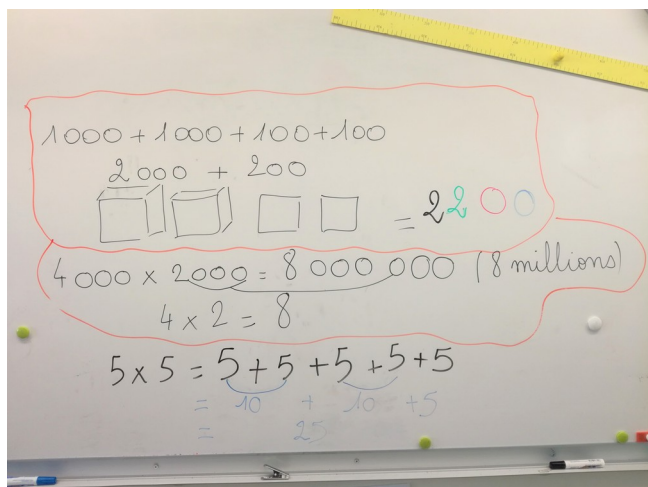 1000 + 1000 + 100 + 100
2000 + 200
= 2200
4000 x 2000 = 8 000 000 (8 millions)
4 x 2 = 8
5 x 5 = 5 + 5 + 5 + 5 + 5
= 10 + 10 + 5
= 25